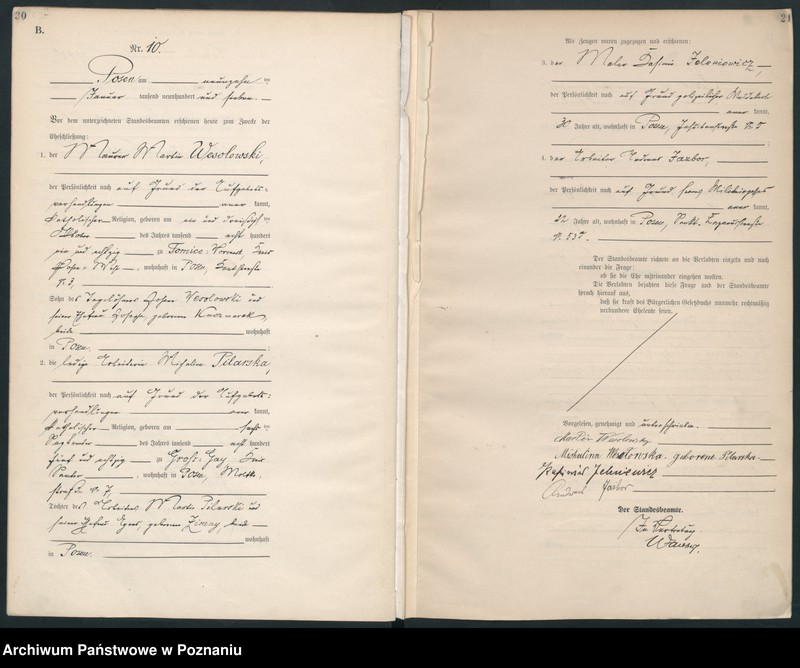 20
B.
Nr. 10.
Posen am neunzehn ten
Januar tausend neunhundert und sieben.
Vor dem unterzeichneten Standesbeamten erschienen heute zum Zwecke der
Eheschließung:
1. der Maurer Martin Wesołowski,
der Persönlichkeit nach auf Grund der Aufgebots-
verhandlungen aner kannt,
katholischer Religion, geboren am ein und dreißigsten
Oktober des Jahres tausend acht hundert
ein und achtzig zu Tomice, Kreis
Posen-West, wohnhaft in Posen,
N. 3,
Sohn des Tagelöhners Wesołowski und
seiner Ehefrau Josepha, geborenen Kaczmarek,
beide wohnhaft
in Posen.
2. die ledige Arbeiterin Michalina Pilarska,
der Persönlichkeit nach auf Grund der Aufgebots-
verhandlungen aner kannt,
katholischer Religion, geboren am sechs ten
September des Jahres tausend acht hundert
fünf und achtzig zu Groß-Gay, Kreis
Samter, wohnhaft in Posen, Moltke-
straße N. 7,
Tochter des Arbeiters Martin Pilarski und
seiner Ehefrau Agnes, geborenen Zimny, beide
wohnhaft
in Posen.
21
Als Zeugen waren zugezogen und erschienen:
3. der Maler Kasimir Jeloniowicz,
der Persönlichkeit nach auf Grund polizeilicher
aner kannt,
Jahre alt, wohnhaft in Posen, Jesuitenstraße N. 5
4. der Arbeiter Andreas Jazbor,
der Persönlichkeit nach auf Grund seines Militärpasses
aner kannt,
Jahre alt, wohnhaft in Posen, Sankt Lazarusstraße
N. 53a.
Der Standesbeamte richtete an die Verlobten einzeln und nach
einander die Frage:
ob sie die Ehe miteinander eingehen wollen.
Die Verlobten bejahten diese Frage und der Standesbeamte
sprach hierauf aus,
daß sie kraft des Bürgerlichen Gesetzbuchs nunmehr rechtmäßig
verbundene Eheleute seien.
Vorgelesen, genehmigt und unterschrieben.
Martin Wesołowsky
Michalina Wesołowska geborene Pilarska
Kazimierz Jeloniewicz
Andreas Jazbor
Der Standesbeamte.
In Vertretung
Archiwum Państwowe w Poznaniu